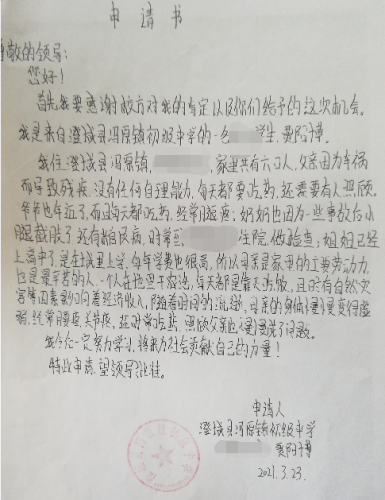 申请书
尊敬的领导:
您好!
首先我要感谢校方对我的肯定以及你们给予的这次机会。
我是来自澄城县冯原镇初级中学的一名 学生,
我住澄城县冯原镇, ,家里共有六口人,父亲因为车祸
而导致残疾,没有任何自理能力,每天都要吃药,还需要有人照顾。
爷爷也年迈了,而且每天都吃药,经常腿疼;奶奶也因为一些事故后小
腿截肢了还有糖尿病,时常到 住院,做检查;姐姐已经
上高中了是在城里上学,每年学费也很高,所以母亲是家里的主要劳动力,
也是最辛苦的人,一个人在地里干农活,每天都是靠天为收,且时有自然灾
害等因素影响着经济收入,随着时间的流逝,母亲的身体慢慢变得虚
弱,经常腰疼,关节疼,还时常吃药,照顾父亲也慢慢
我今后一定努力学习,将来为社会贡献自己的力量!
特此申请,望领导批准。
申请人
澄城县冯原镇初级中学
2021.3.23.